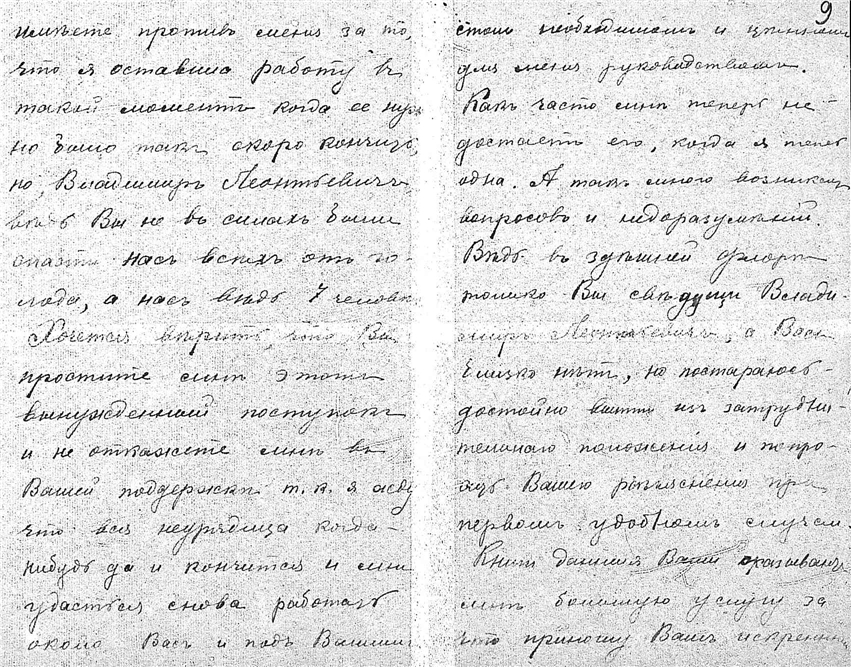 имѣете противъ меня за то,
что я оставила работу въ
такой моментъ когда ее нуж
но было такъ скоро кончить,
но, Владимиръ Леонтьевичъ,
вѣдь Вы не въ силахъ были
спасти насъ всѣхъ отъ го-
лода, а насъ вѣдь 7 человѣк
Хочется вѣрить, что Вы
простите мнѣ этотъ
вынужденный поступокъ
и не откажете мнѣ въ
Вашей поддержкѣ т.к. я
что вся неурядица когда-
нибудь да и кончится и мнѣ
удасться снова работать
около Васъ и подъ Вашим
9
столь необходимымъ и цѣннымъ
для меня руководствомъ.
Какъ часто мнѣ теперь не-
достаетъ его, когда я тепер
одна. А такъ много возникаетъ
вопросовъ и недоразумѣній.
Вѣдь въ здѣшней флорѣ
только Вы свѣдущи Влади-
миръ Леонтьевичъ, а Васъ
близко нѣтъ, но постараюсь-
достойно выйти изъ затрудни-
тельнаго положенія и попро-
шу Вашего разъясненія при
первомъ удобномъ случаѣ.
Книги данныя Вами оказываютъ
мнѣ большую услугу за
что приношу Вамъ искренн